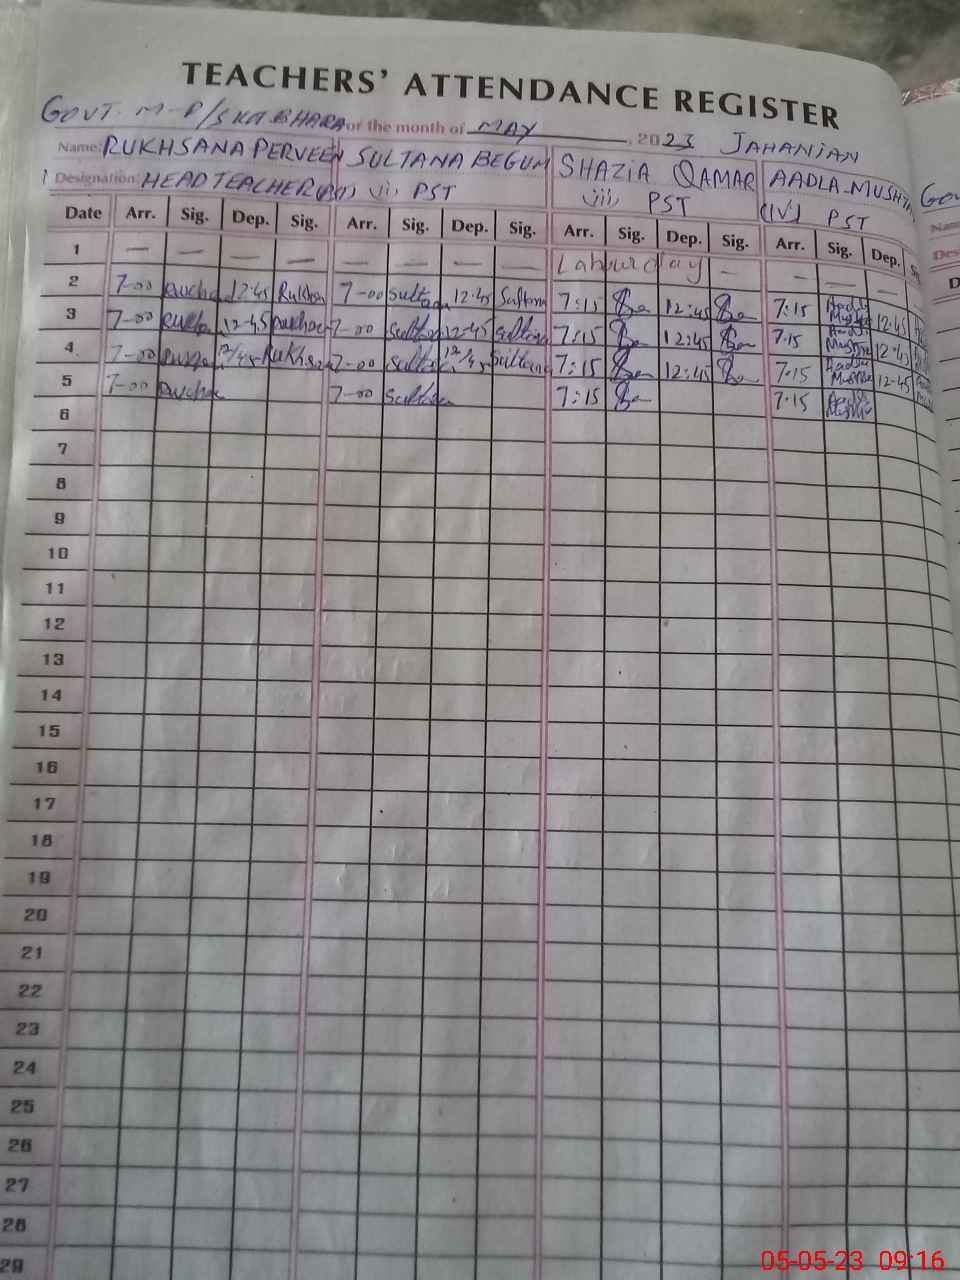 TEACHERS' ATTENDANCE REGISTER
GOVT. M-P/S KATBHARA for the month of MAY, 2023 JAHANIAN
Name: RUKHSANA PERVEEN SULTANA BEGUM SHAZIA QAMAR AADLA-MUSHT
Designation: HEAD TEACHER (i) (ii) PST (iii) PST (IV) PST
Date Arr. Sig. Dep. Sig. Arr. Sig. Dep. Sig. Arr. Sig. Dep. Sig. Arr. Sig. Dep.
1 — — — — — — — — Labour day — — — —
2 7-00 12-45 Rukhsan 7-00 Sultana 12-45 Sultana 7:15 12:45 7:15 12-45
3 7-00 12-45 7-00 Sultana 12-45 Sultana 7:15 12:45 7.15 12-45
4 7-00 12/45 Rukhsan 7-00 Sultana 12/45 Sultana 7:15 12:45 7.15 12-45
5 7-00 7-00 Sultana 7:15 7.15
6
7
8
9
10
11
12
13
14
15
16
17
18
19
20
21
22
23
24
25
26
27
28
29
05-05-23 09:16